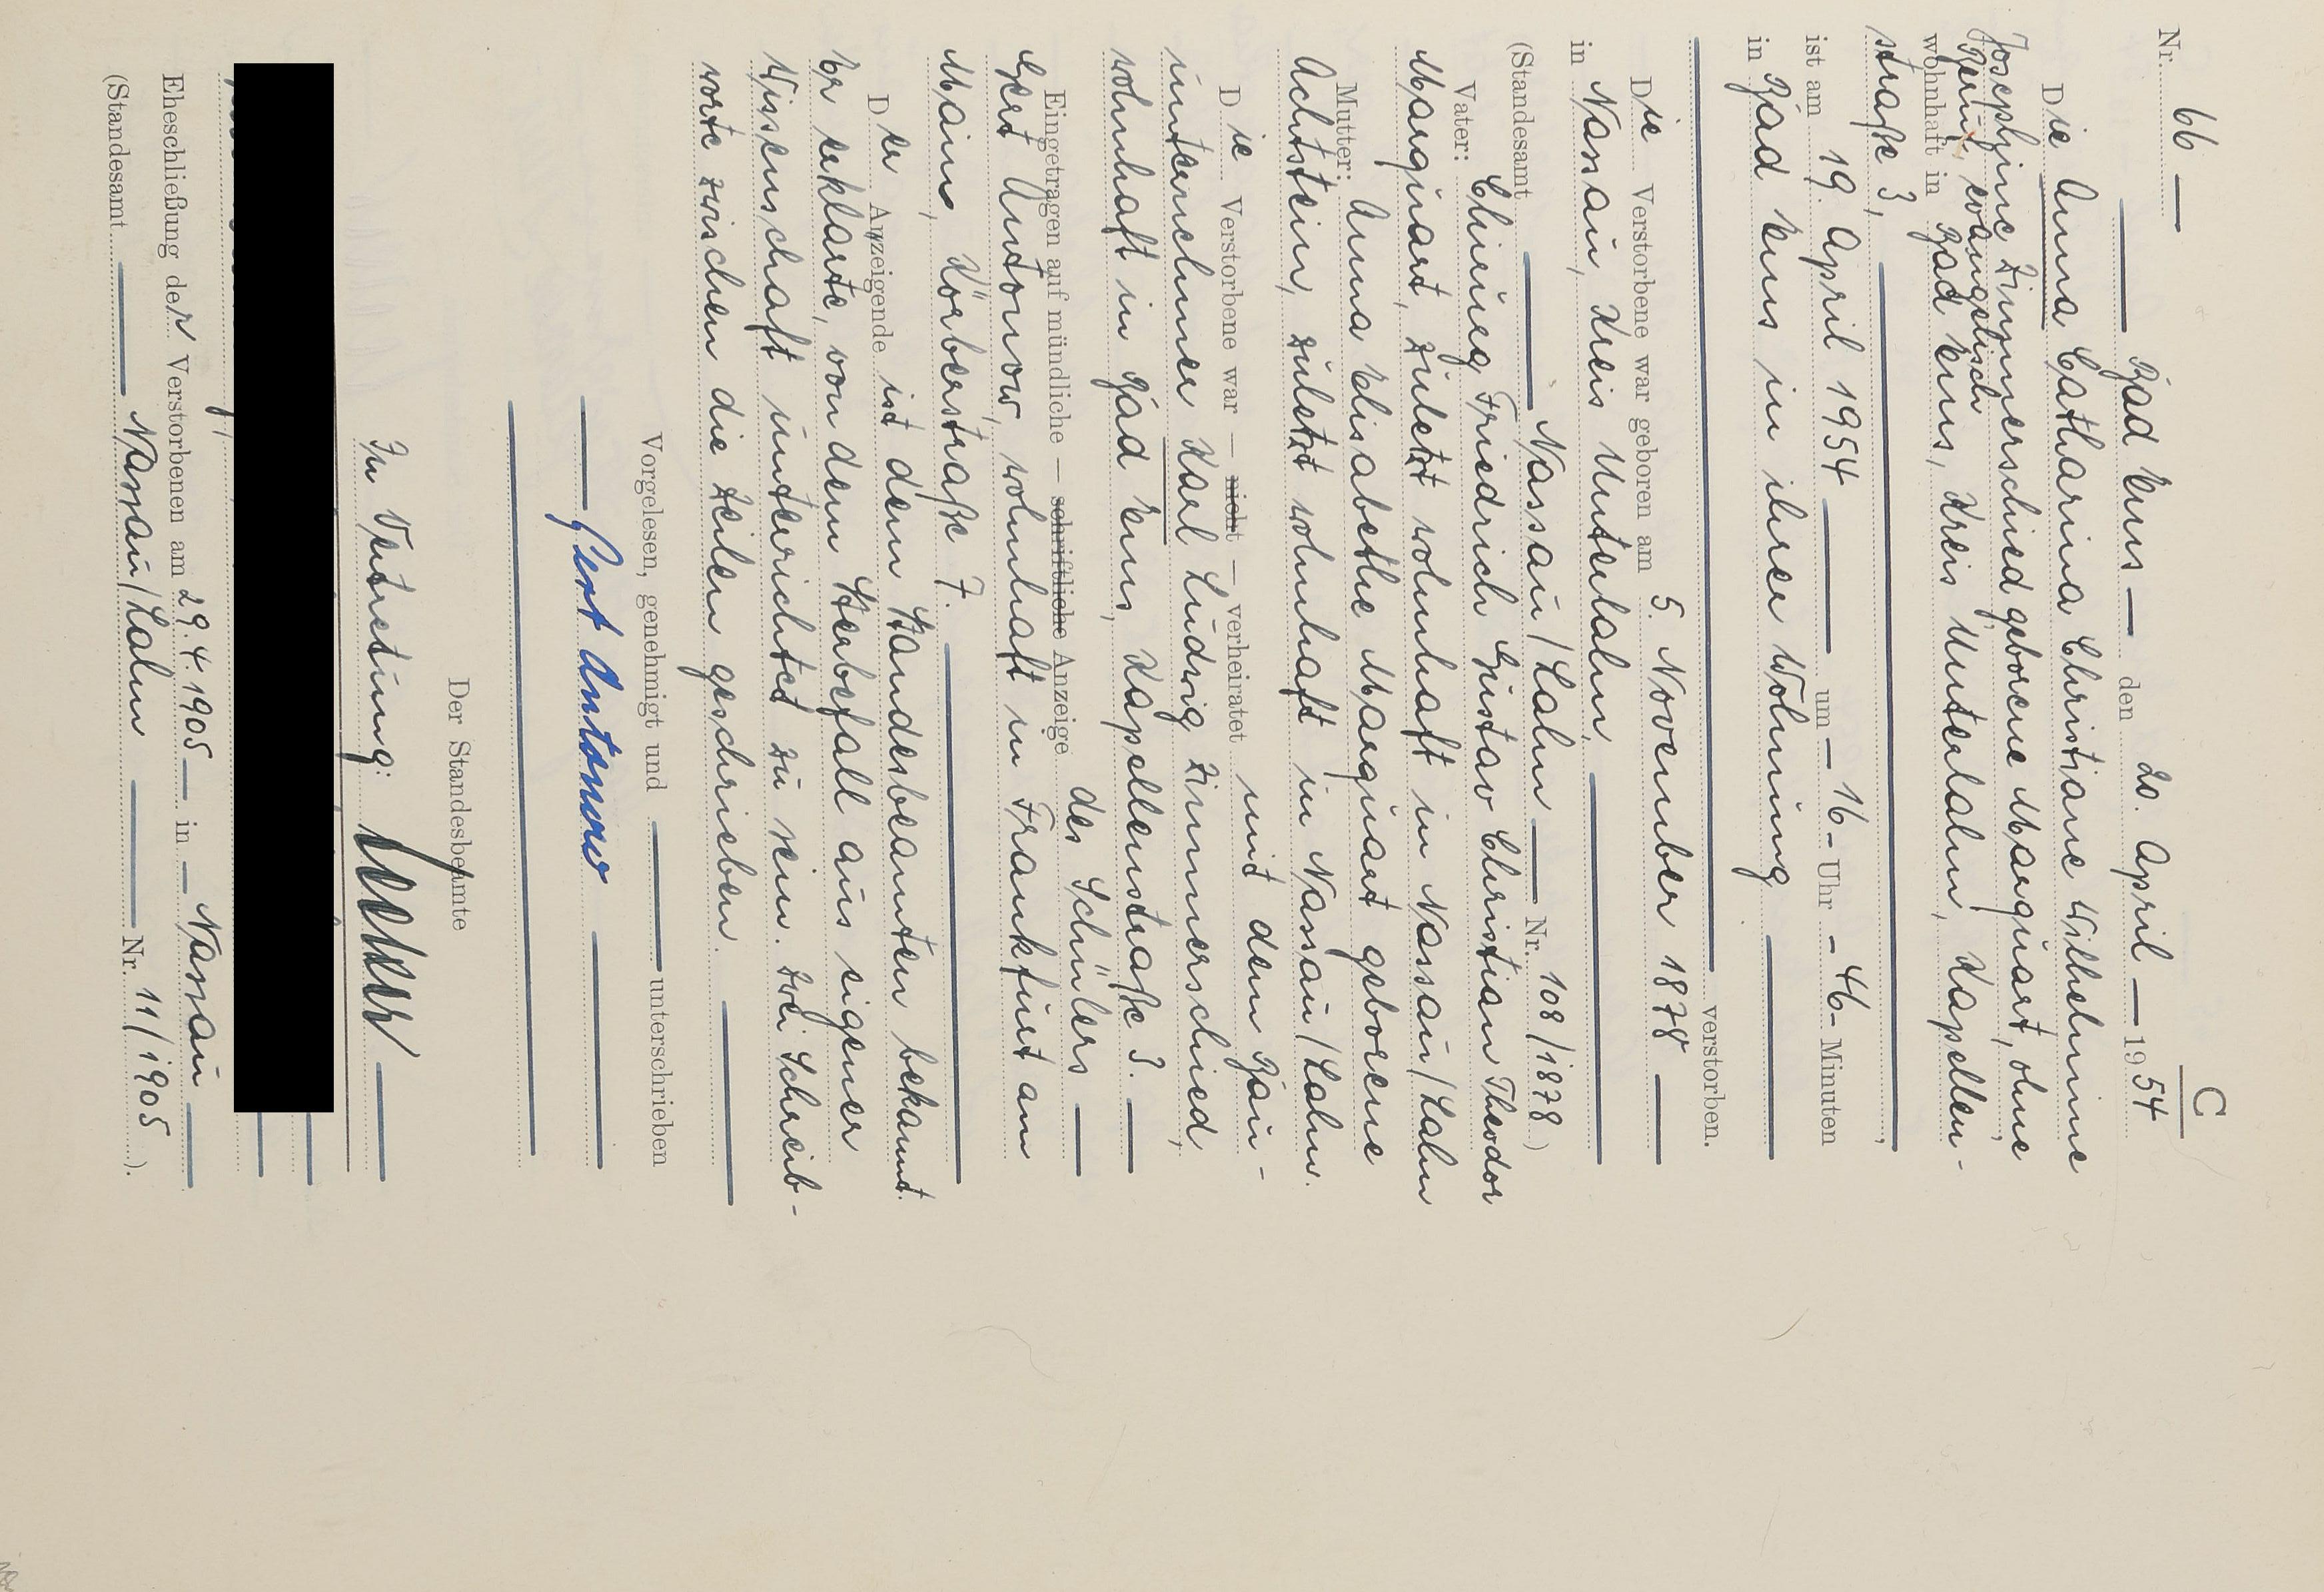 C
Nr. 66
Bad Ems den 20. April 1954
Die Anna Catharina Christiane Wilhelmine
Josephine Zimmerschied geborene Marquart, ohne
Beruf, evangelisch,
wohnhaft in Bad Ems, Kreis Unterlahn, Kapellen-
straße 3,
ist am 19. April 1954 um - 16 - Uhr - 46 - Minuten
in Bad Ems in ihrer Wohnung
verstorben.
Die Verstorbene war geboren am 5. November 1878
in Nassau, Kreis Unterlahn,
(Standesamt Nassau/Lahn Nr. 108/1878)
Vater: Friedrich Gustav Christian Theodor
Marquart, zuletzt wohnhaft in Nassau/Lahn
Mutter: Anna Elisabethe Marquart geborene
Achtstein, zuletzt wohnhaft in Nassau/Lahn.
Die Verstorbene war — nicht — verheiratet mit dem Bau-
unternehmer Karl Ludwig Zimmerschied,
wohnhaft in Bad Ems, Kapellenstraße 3.
Eingetragen auf mündliche — schriftliche Anzeige des Schülers
Gert Antonow, wohnhaft in Frankfurt am
Main, Körberstraße 7.
Der Anzeigende ist dem Standesbeamten bekannt.
Er erklärte, von dem Sterbefall aus eigener
Wissenschaft unterrichtet zu sein. Zwei Schreib-
worte zwischen die Zeilen geschrieben.
Vorgelesen, genehmigt und unterschrieben
Gert Antonow
Der Standesbeamte
In Vertretung:
Eheschließung der Verstorbenen am 29.4.1905 in Nassau
(Standesamt Nassau/Lahn Nr. 11/1905).